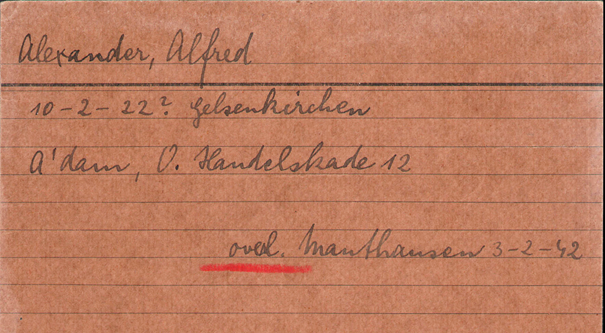 Alexander, Alfred
10-2-22?. Gelsenkirchen
A'dam, O. Handelskade 12
overl. Mauthausen 3-2-42